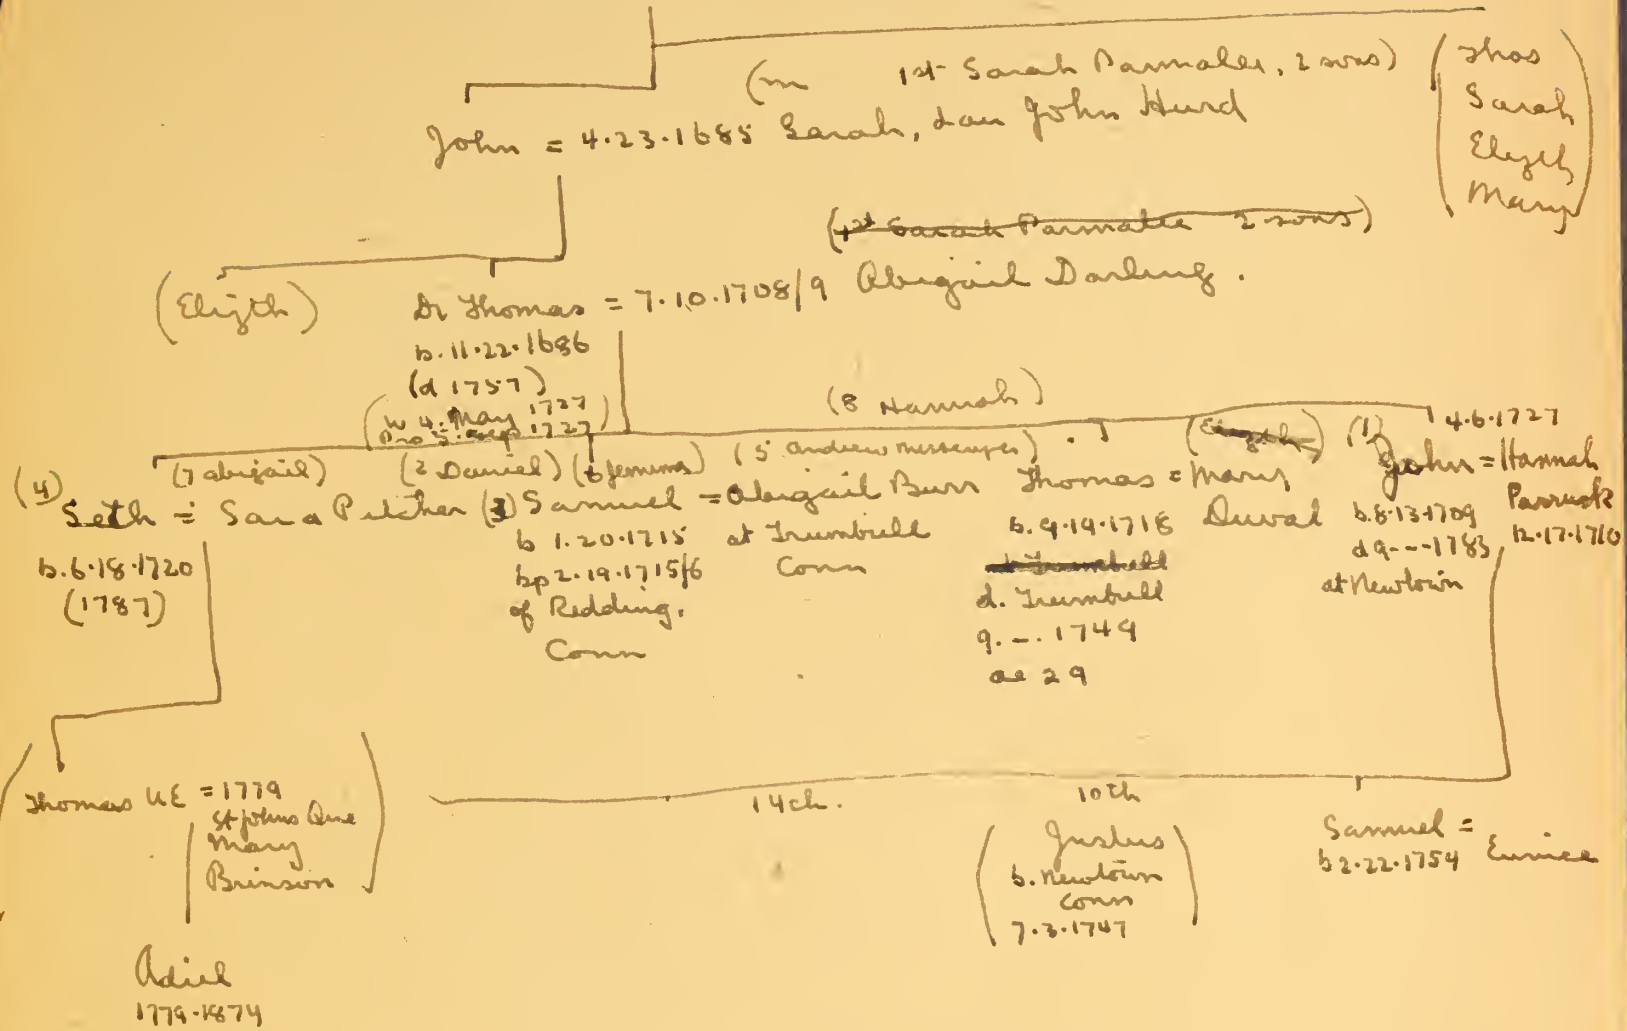 (m 1st Sarah Parmalee, 2 sons)
(Thos
Sarah
Elizth
Mary)
John = 4.23.1685 Sarah, dau John Hurd
(1st Sarah Parmalee 2 sons)
(Elizth)
Dr Thomas = 7.10.1708/9 Abigail Darling.
b. 11.22.1686
(d 1757)
(w 4. May 1727
Pro 5. Sep 1727)
(8 Hannah)
(7 abigail) (2 Daniel) (6 Jemima) (5 andrew messenger) (Elizth) (1) 4.6.1727
(4) Seth = Sara Pitcher (3) Samuel = Abigail Burr Thomas = Mary Duval John = Hannah
b. 6.18.1720
(1787)
b 1.20.1715
bp 2.19.1715/6
of Redding,
Conn
at Trumbull
Conn
b. 9.14.1718
at Trumbull
d. Trumbull
9.-.1749
ae 29
b. 8.13.1709
d 9.--.1783
at Newtown
12.17.1710
(Thomas UE = 1779
St Johns Que
Mary
Brinson)
14 ch.
10th
(Justus
b. Newtown
Conn
7.3.1747)
Samuel = Eunice
b 2.22.1754
Adiel
1779-1874